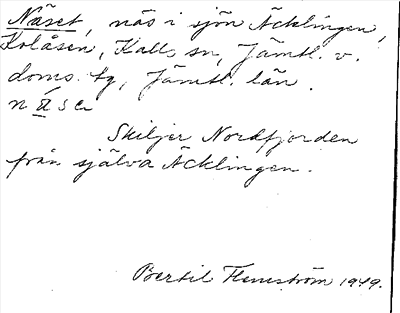 Näset, näs i sjön Äcklingen,
Kolåsen, Kall sn, Jämtl. v.
doms. tg, Jämtl. län.
näsɑ
Skiljer Nordfjorden
från själva Äcklingen.
Bertil Flemström 1949.